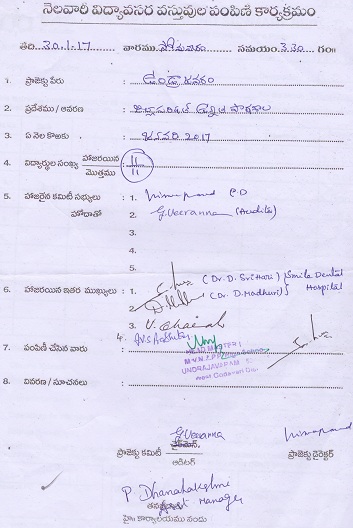 నెలవారీ విద్యావసర వస్తువుల పంపిణీ కార్యక్రమం
తేది... 30.1.17 వారము సోమవారం సమయం. 3.30 గం॥
1. ప్రాజెక్టు పేరు : ఉండ్రాజవరం
2. ప్రదేశము / ఆవరణ : జిల్లాపరిషత్ ఉన్నత పాఠశాల
3. ఏ నెల కొఱకు : జనవరి 2017
4. విద్యార్థుల సంఖ్య హాజరయిన : 11
మొత్తము 11
5. హాజరైన కమిటీ సభ్యులు : 1. P.D
హోదాతో 2. G.Veeranna (Auditor)
3.
4.
5.
6. హాజరయిన ఇతర ముఖ్యులు : 1. (Dr. D. Srihari) Smile Dental
2. (Dr. D. Madhuri) Hospital
3.
4.
7. పంపిణీ చేసిన వారు :
HEAD MASTER
UNDRAJAVARAM
West Godavari Dt.
8. వివరణ / సూచనలు :
G.Veeranna
ప్రాజెక్టు కమిటీ ఛైర్మెన్ ప్రాజెక్టు డైరెక్టర్
ఆడిటర్
P Dhanalakshmi
Manager
హై॥ కార్యాలయము నందు